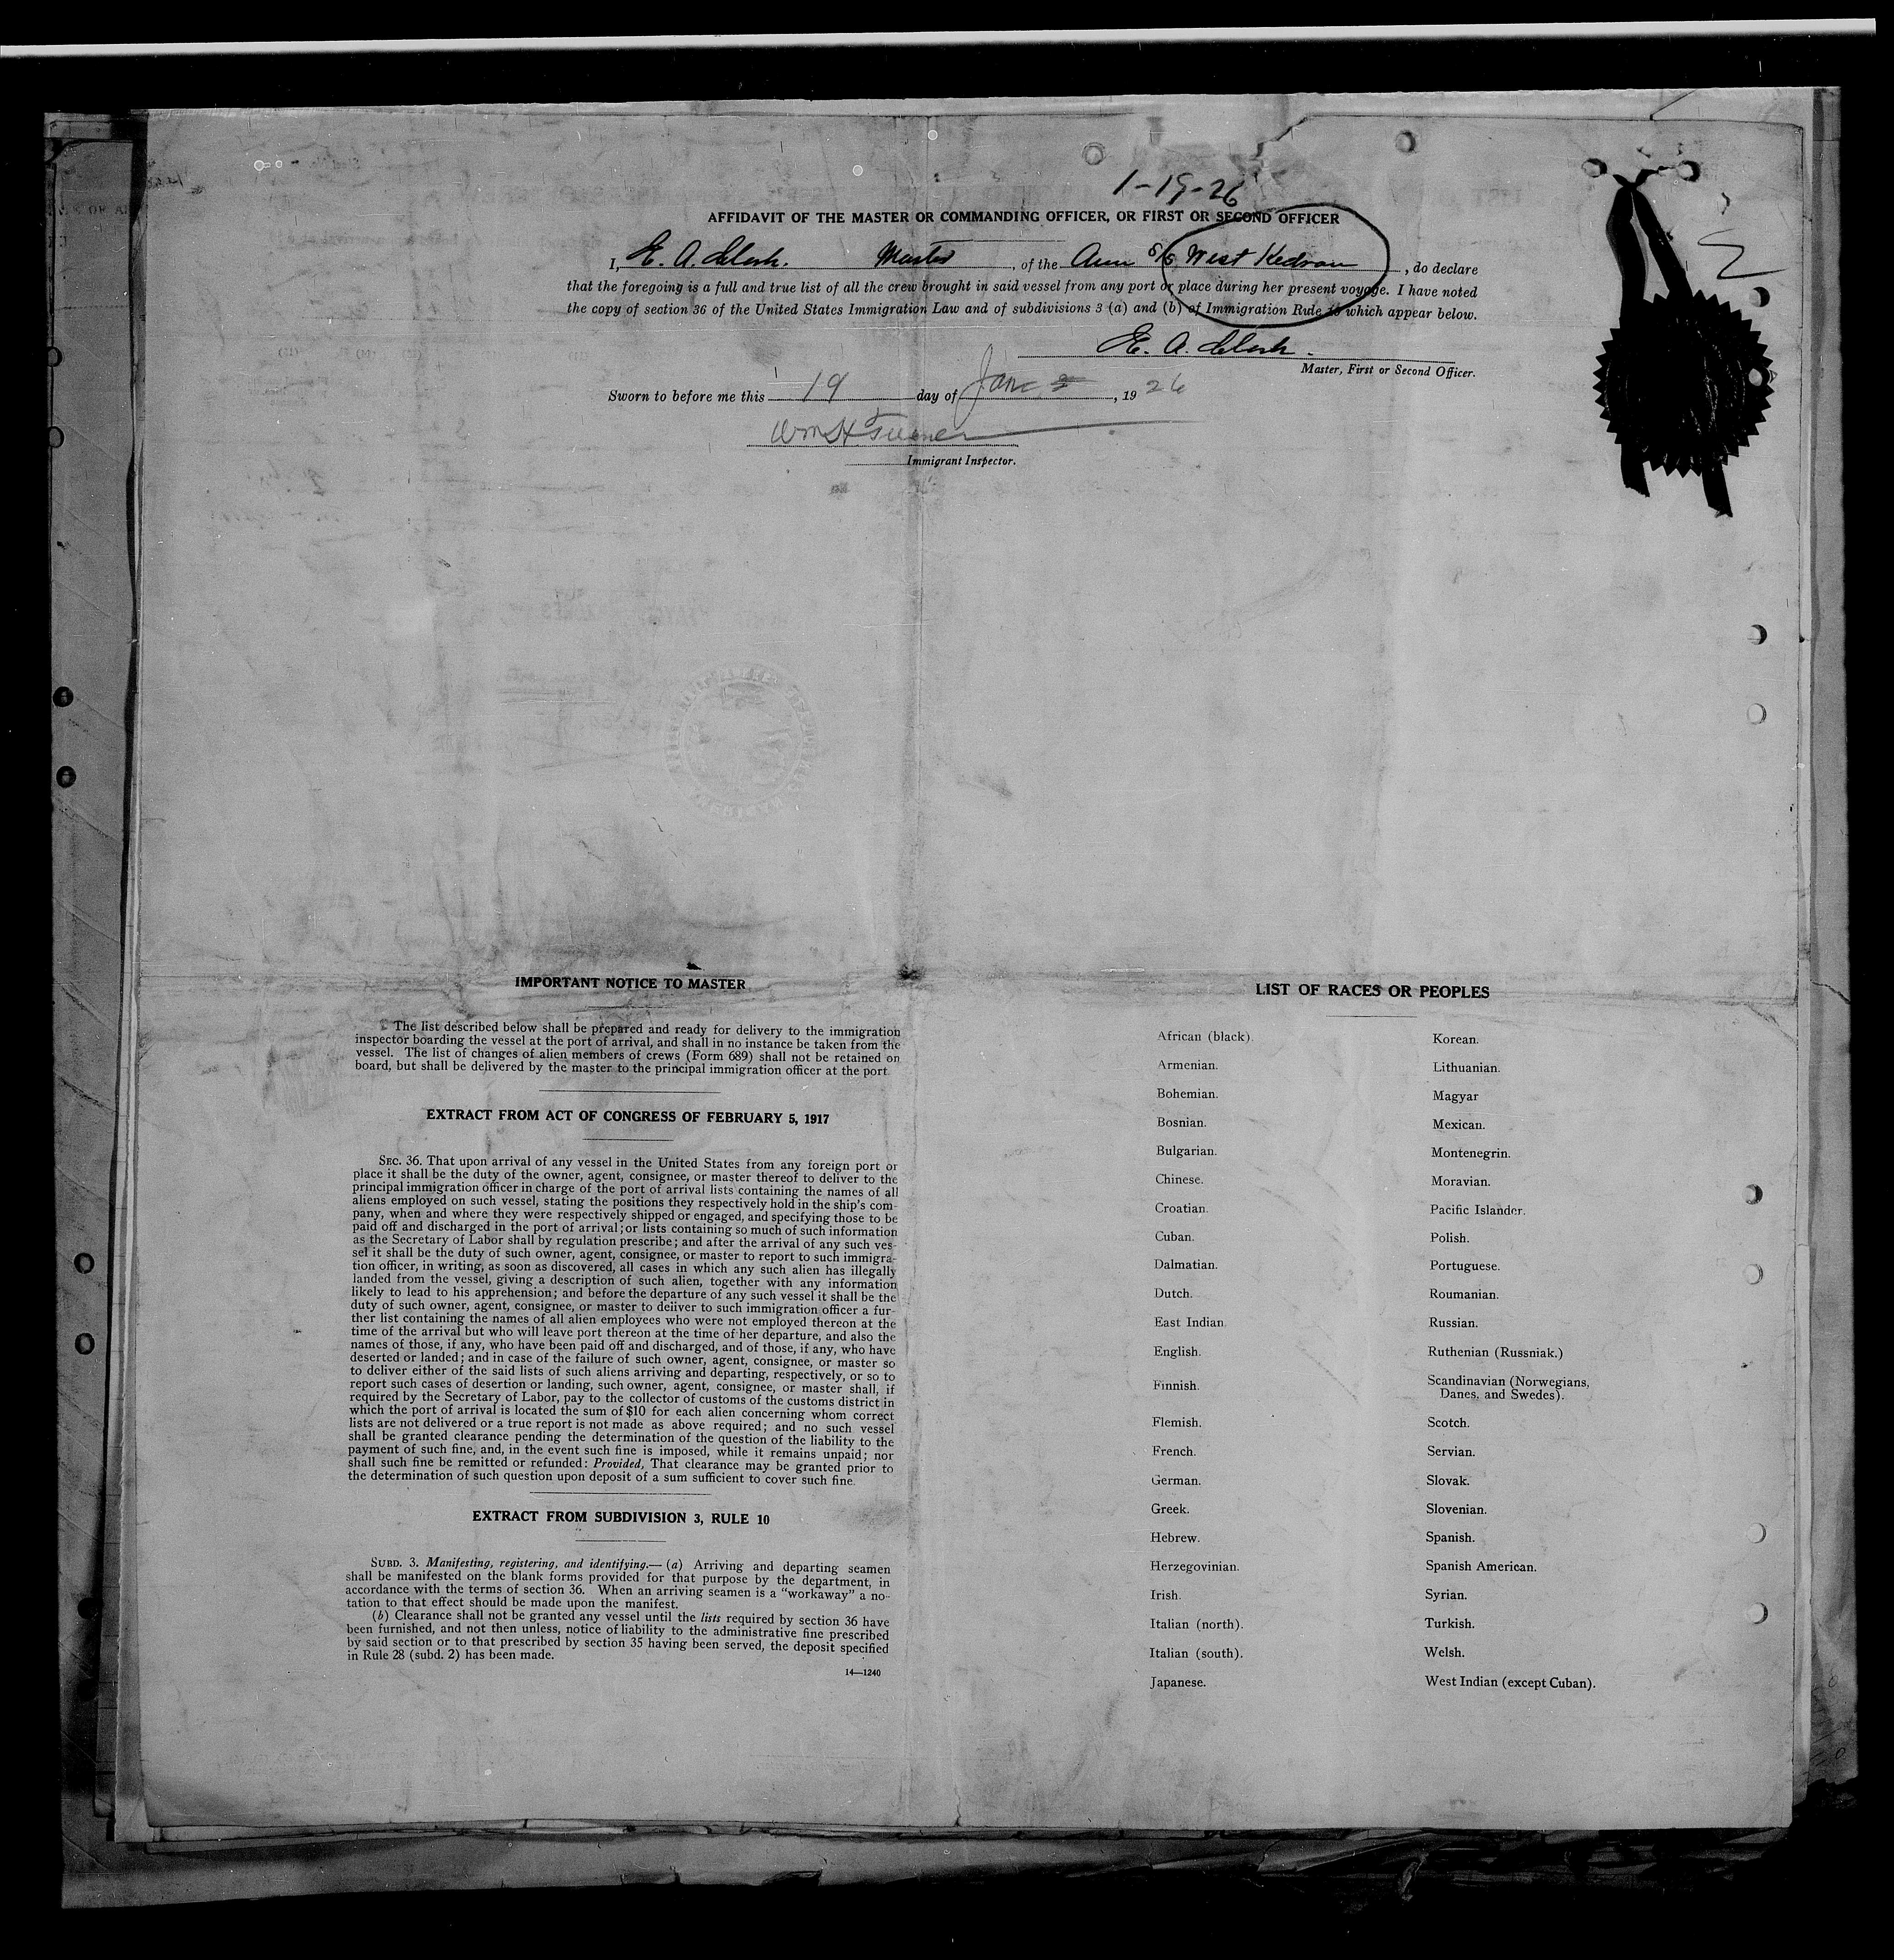 1-19-26
AFFIDAVIT OF THE MASTER OR COMMANDING OFFICER, OR FIRST OR SECOND OFFICER
I, E. A. Clark. Master, of the Am S/S West Kedron, do declare
that the foregoing is a full and true list of all the crew brought in said vessel from any port or place during her present voyage. I have noted
the copy of section 36 of the United States Immigration Law and of subdivisions 3 (a) and (b) of Immigration Rule 10 which appear below.
E. A. Clark.
Master, First or Second Officer.
Sworn to before me this 19 day of Jan, 1926
Wm H
Immigrant Inspector.
IMPORTANT NOTICE TO MASTER
The list described below shall be prepared and ready for delivery to the immigration
inspector boarding the vessel at the port of arrival, and shall in no instance be taken from the
vessel. The list of changes of alien members of crews (Form 689) shall not be retained on
board, but shall be delivered by the master to the principal immigration officer at the port
EXTRACT FROM ACT OF CONGRESS OF FEBRUARY 5, 1917
SEC. 36. That upon arrival of any vessel in the United States from any foreign port or
place it shall be the duty of the owner, agent, consignee, or master thereof to deliver to the
principal immigration officer in charge of the port of arrival lists containing the names of all
aliens employed on such vessel, stating the positions they respectively hold in the ship's com-
pany, when and where they were respectively shipped or engaged, and specifying those to be
paid off and discharged in the port of arrival; or lists containing so much of such information
as the Secretary of Labor shall by regulation prescribe; and after the arrival of any such ves-
sel it shall be the duty of such owner, agent, consignee, or master to report to such immigra-
tion officer, in writing, as soon as discovered, all cases in which any such alien has illegally
landed from the vessel, giving a description of such alien, together with any information
likely to lead to his apprehension; and before the departure of any such vessel it shall be the
duty of such owner, agent, consignee, or master to deliver to such immigration officer a fur-
ther list containing the names of all alien employees who were not employed thereon at the
time of the arrival but who will leave port thereon at the time of her departure, and also the
names of those, if any, who have been paid off and discharged, and of those, if any, who have
deserted or landed; and in case of the failure of such owner, agent, consignee, or master so
to deliver either of the said lists of such aliens arriving and departing, respectively, or so to
report such cases of desertion or landing, such owner, agent, consignee, or master shall, if
required by the Secretary of Labor, pay to the collector of customs of the customs district in
which the port of arrival is located the sum of $10 for each alien concerning whom correct
lists are not delivered or a true report is not made as above required; and no such vessel
shall be granted clearance pending the determination of the question of the liability to the
payment of such fine, and, in the event such fine is imposed, while it remains unpaid; nor
shall such fine be remitted or refunded: Provided, That clearance may be granted prior to
the determination of such question upon deposit of a sum sufficient to cover such fine.
EXTRACT FROM SUBDIVISION 3, RULE 10
SUBD. 3. Manifesting, registering, and identifying.—(a) Arriving and departing seamen
shall be manifested on the blank forms provided for that purpose by the department, in
accordance with the terms of section 36. When an arriving seamen is a "workaway" a no-
tation to that effect should be made upon the manifest.
(b) Clearance shall not be granted any vessel until the lists required by section 36 have
been furnished, and not then unless, notice of liability to the administrative fine prescribed
by said section or to that prescribed by section 35 having been served, the deposit specified
in Rule 28 (subd. 2) has been made.
14—1240
LIST OF RACES OR PEOPLES
African (black).
Armenian.
Bohemian.
Bosnian.
Bulgarian.
Chinese.
Croatian.
Cuban.
Dalmatian.
Dutch.
East Indian.
English.
Finnish.
Flemish.
French.
German.
Greek.
Hebrew.
Herzegovinian.
Irish.
Italian (north).
Italian (south).
Japanese.
Korean.
Lithuanian.
Magyar
Mexican.
Montenegrin.
Moravian.
Pacific Islander.
Polish.
Portuguese.
Roumanian.
Russian.
Ruthenian (Russniak.)
Scandinavian (Norwegians,
Danes, and Swedes).
Scotch.
Servian.
Slovak.
Slovenian.
Spanish.
Spanish American.
Syrian.
Turkish.
Welsh.
West Indian (except Cuban).